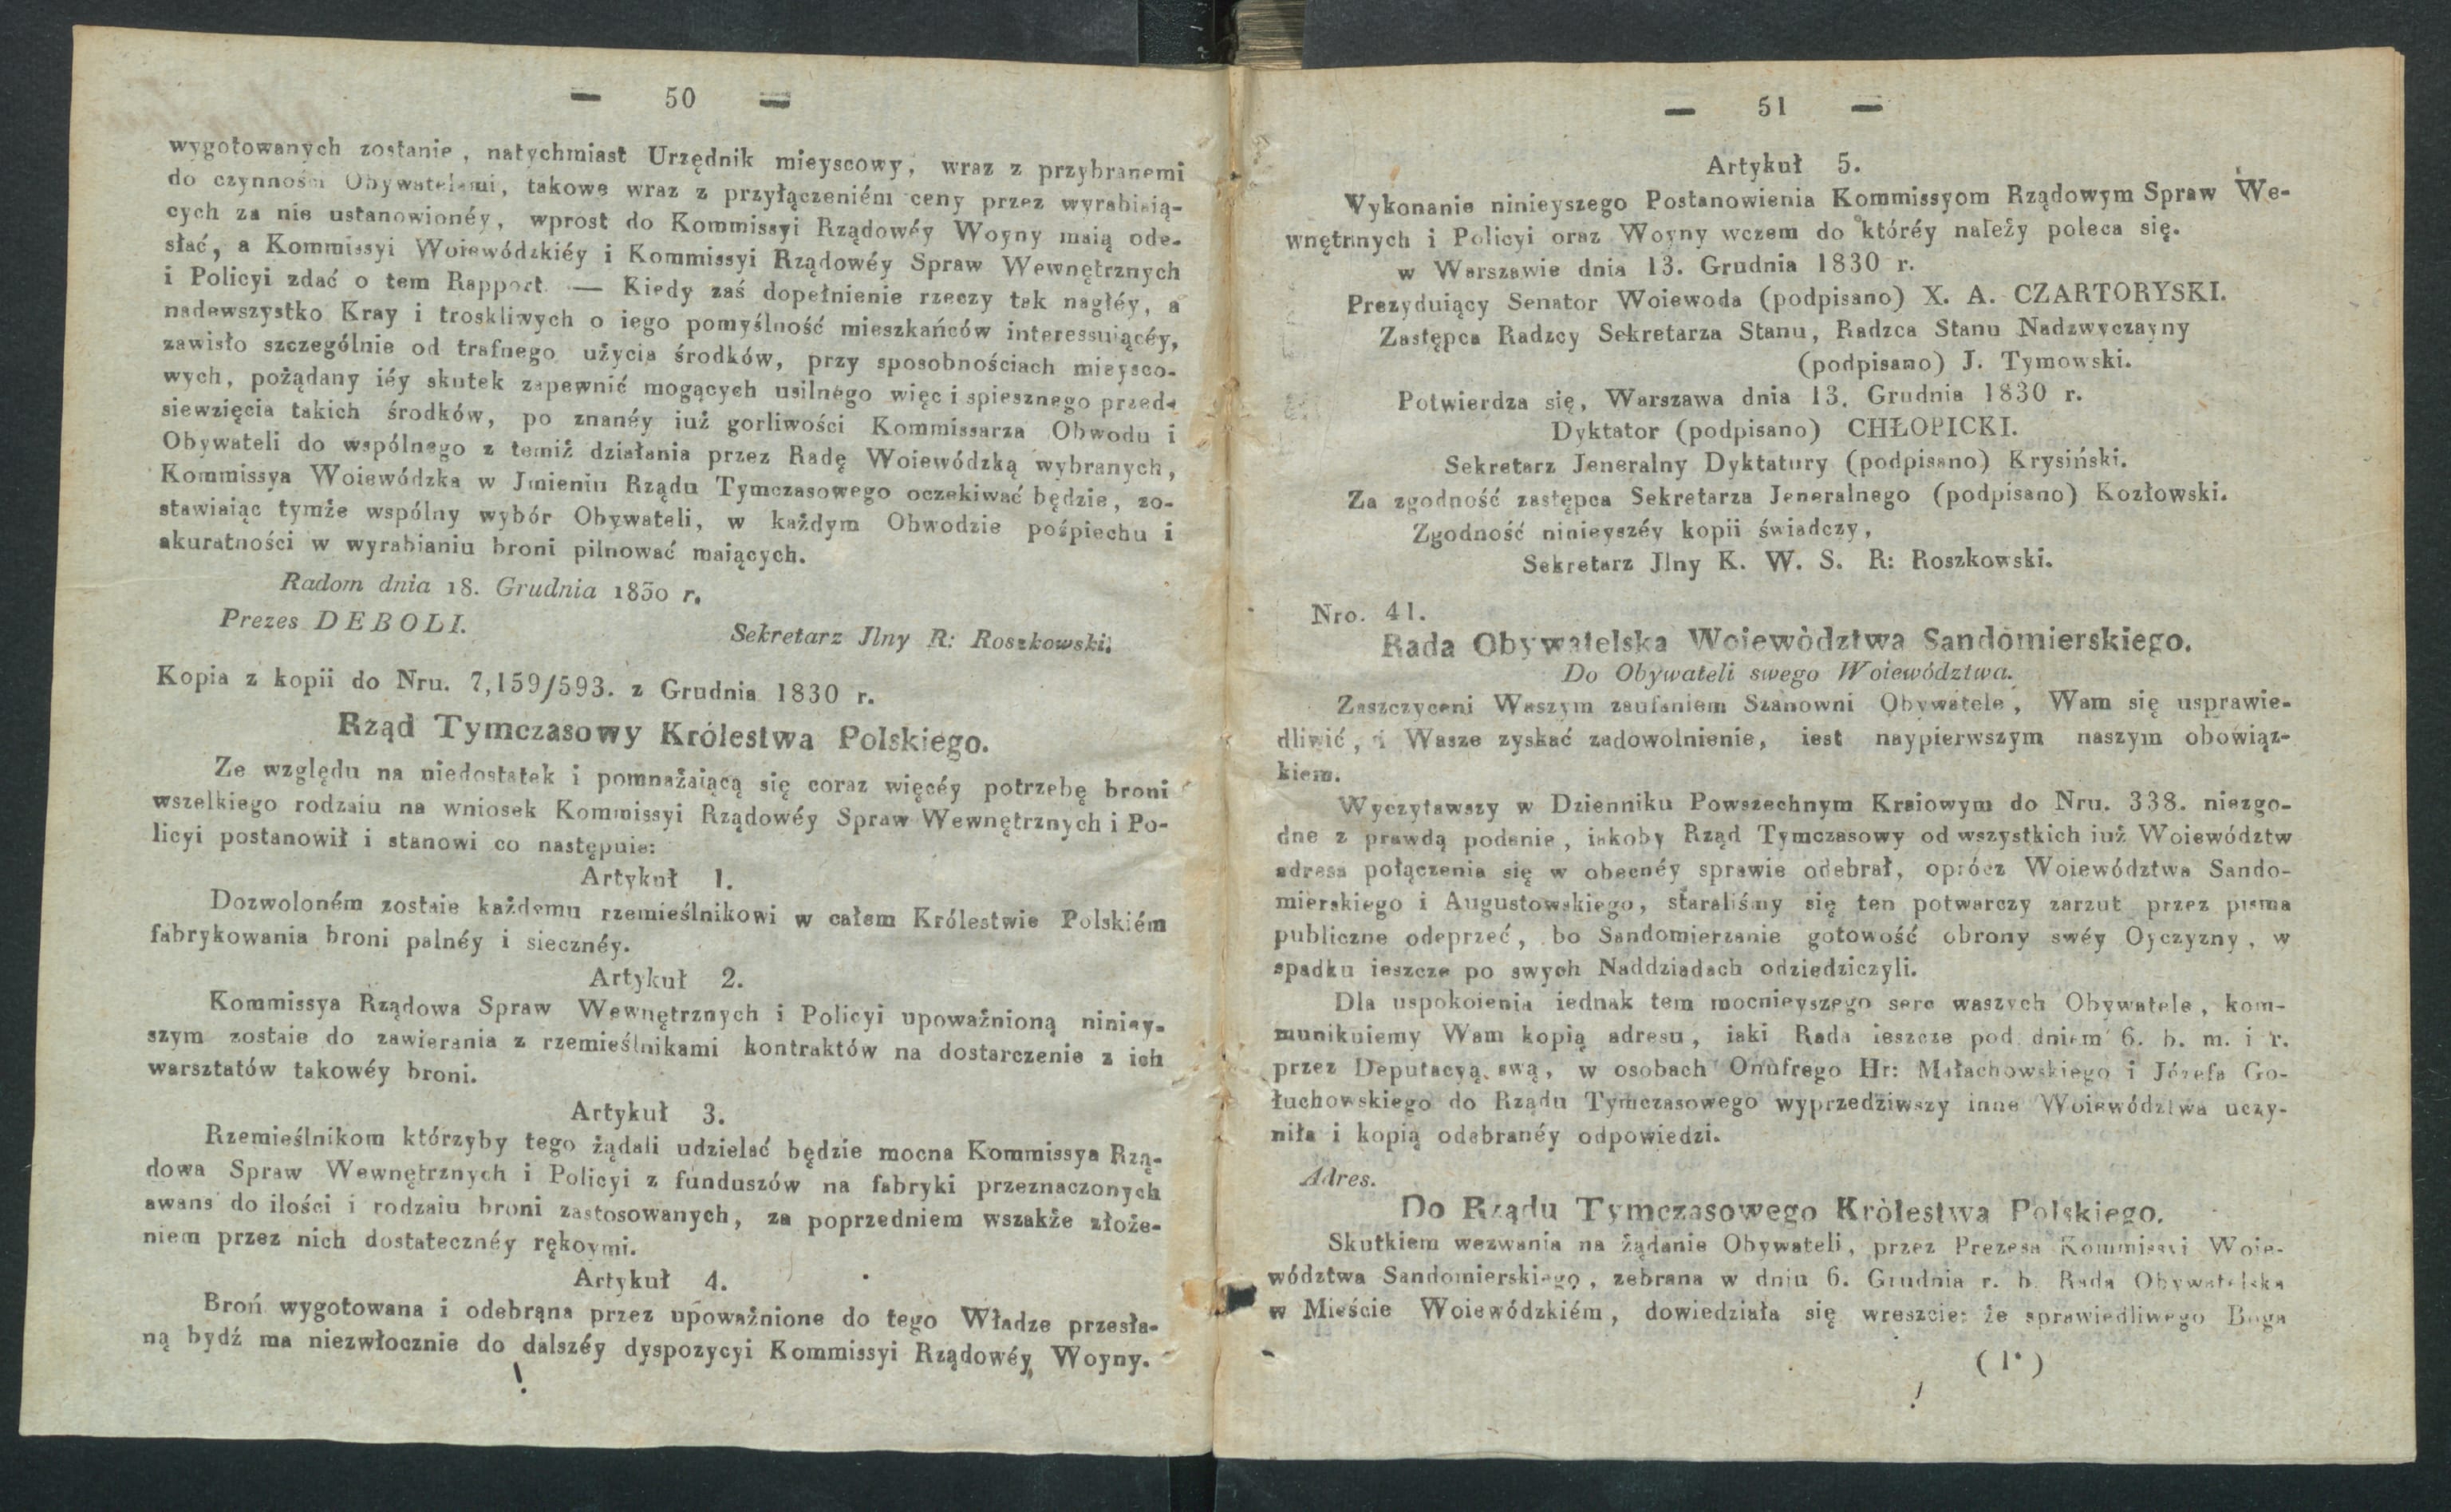 — 50 —
wygotowanych zostanie, natychmiast Urzędnik mieyscowy, wraz z przybranemi
do czynności Obywatelami, takowe wraz z przyłączeniém ceny przez wyrabiaią-
cych za nie ustanowionéy, wprost do Kommissyi Rządowéy Woyny maią ode-
słać, a Kommissyi Woiewódzkiéy i Kommissyi Rządowéy Spraw Wewnętrznych
i Policyi zdać o tem Rapport. — Kiedy zaś dopełnienie rzeczy tak nagłéy, a
nadewszystko Kray i troskliwych o iego pomyślność mieszkańców interessuiącéy,
zawisło szczególnie od trafnego użycia środków, przy sposobnościach mieysco-
wych, pożądany iéy skutek zapewnić mogących usilnego więc i spiesznego przed-
siewzięcia takich środków, po znanéy iuż gorliwości Kommissarza Obwodu i
Obywateli do wspólnego z temiż działania przez Radę Woiewódzką wybranych,
Kommissya Woiewódzka w Jmieniu Rządu Tymczasowego oczekiwać będzie, zo-
stawiaiąc tymże wspólny wybór Obywateli, w każdym Obwodzie pośpiechu i
akuratności w wyrabianiu broni pilnować maiących.
Radom dnia 18. Grudnia 1830 r.
Prezes DEBOLI.
Sekretarz Jlny R: Roszkowski.
Kopia z kopii do Nru. 7,159/593. z Grudnia 1830 r.
Rząd Tymczasowy Królestwa Polskiego.
Ze względu na niedostatek i pomnażaiącą się coraz więcéy potrzebę broni
wszelkiego rodzaiu na wniosek Kommissyi Rządowéy Spraw Wewnętrznych i Po-
licyi postanowił i stanowi co następuie:
Artykuł 1.
Dozwoloném zostaie każdemu rzemieślnikowi w całem Królestwie Polskiém
fabrykowania broni palnéy i siecznéy.
Artykuł 2.
Kommissya Rządowa Spraw Wewnętrznych i Policyi upoważnioną niniey-
szym zostaie do zawierania z rzemieślnikami kontraktów na dostarczenie z ich
warsztatów takowéy broni.
Artykuł 3.
Rzemieślnikom którzyby tego żądali udzielać będzie mocna Kommissya Rzą-
dowa Spraw Wewnętrznych i Policyi z funduszów na fabryki przeznaczonych
awans do ilości i rodzaiu broni zastosowanych, za poprzedniem wszakże złoże-
niem przez nich dostatecznéy rękoymi.
Artykuł 4.
Broń wygotowana i odebrąna przez upoważnione do tego Władze przesła-
ną bydź ma niezwłocznie do dalszéy dyspozycyi Kommissyi Rządowéy Woyny.
— 51 —
Artykuł 5.
Vykonanie ninieyszego Postanowienia Kommissyom Rządowym Spraw We-
wnętrnnych i Policyi oraz Woyny wczem do któréy należy poleca się.
w Warszawie dnia 13. Grudnia 1830 r.
Prezyduiący Senator Woiewoda (podpisano) X. A. CZARTORYSKI.
Zastępca Radzcy Sekretarza Stanu, Radzca Stanu Nadzwyczayny
(podpisano) J. Tymowski.
Potwierdza się, Warszawa dnia 13. Grudnia 1830 r.
Dyktator (podpisano) CHŁOPICKI.
Sekretarz Jeneralny Dyktatury (podpisano) Krysiński.
Za zgodność zastępca Sekretarza Jeneralnego (podpisano) Kozłowski.
Zgodność ninieyszéy kopii świadczy,
Sekretarz Jlny K. W. S. R: Roszkowski.
Nro. 41.
Rada Obywatelska Woiewòdztwa Sandomierskiego.
Do Obywateli swego Woiewództwa.
Zaszczyceni Waszym zaufaniem Szanowni Obywatele, Wam się usprawie-
dliwić, i Wasze zyskać zadowolnienie, iest naypierwszym naszym obowiąz-
kiem.
Wyczytawszy w Dzienniku Powszechnym Kraiowym do Nru. 338. niezgo-
dne z prawdą podanie, iakoby Rząd Tymczasowy od wszystkich iuż Woiewództw
adressa połączenia się w obecnéy sprawie odebrał, oprócz Woiewództwa Sando-
mierskiego i Augustowskiego, staraliśmy się ten potwarczy zarzut przez pisma
publiczne odeprzeć, bo Sandomierzanie gotowość obrony swéy Oyczyzny, w
spadku ieszcze po swych Naddziadach odziedziczyli.
Dla uspokoienia iednak tem mocnieyszego serc waszych Obywatele, kom-
munikuiemy Wam kopią adresu, iaki Rada ieszcze pod dniem 6. b. m. i r.
przez Deputacyą swą, w osobach Onufrego Hr: Małachowskiego i Józefa Go-
łuchowskiego do Rządu Tymczasowego wyprzedziwszy inne Woiewództwa uczy-
niła i kopią odebranéy odpowiedzi.
Adres.
Do Rządu Tymczasowego Kròlestwa Polskiego.
Skutkiem wezwania na żądanie Obywateli, przez Prezesa Kommissyi Woie-
wództwa Sandomierskiego, zebrana w dniu 6. Grudnia r. b. Rada Obywatelska
w Mieście Woiewódzkiém, dowiedziała się wreszcie: że sprawiedliwego Boga
(1*)